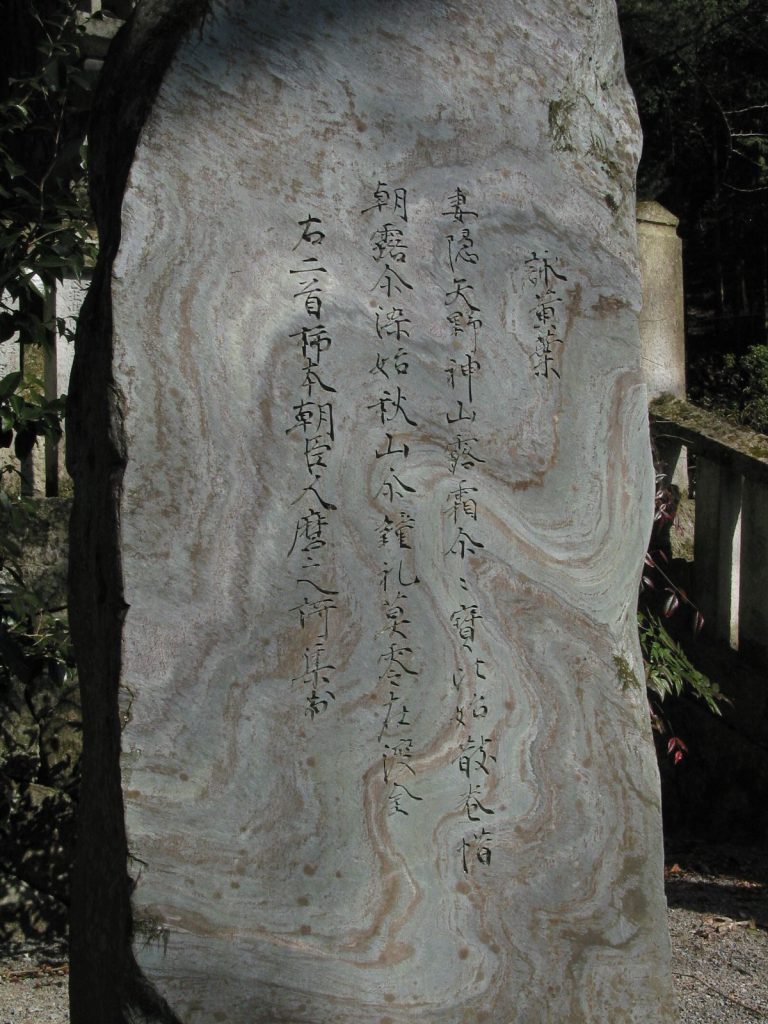 詠黄葉
妻隠矢野神山露霜尓〻寶比始散巻惜
朝露尓染始秋山尓鍾礼莫零在渡金
右二首柿本朝臣人麿之謌集出